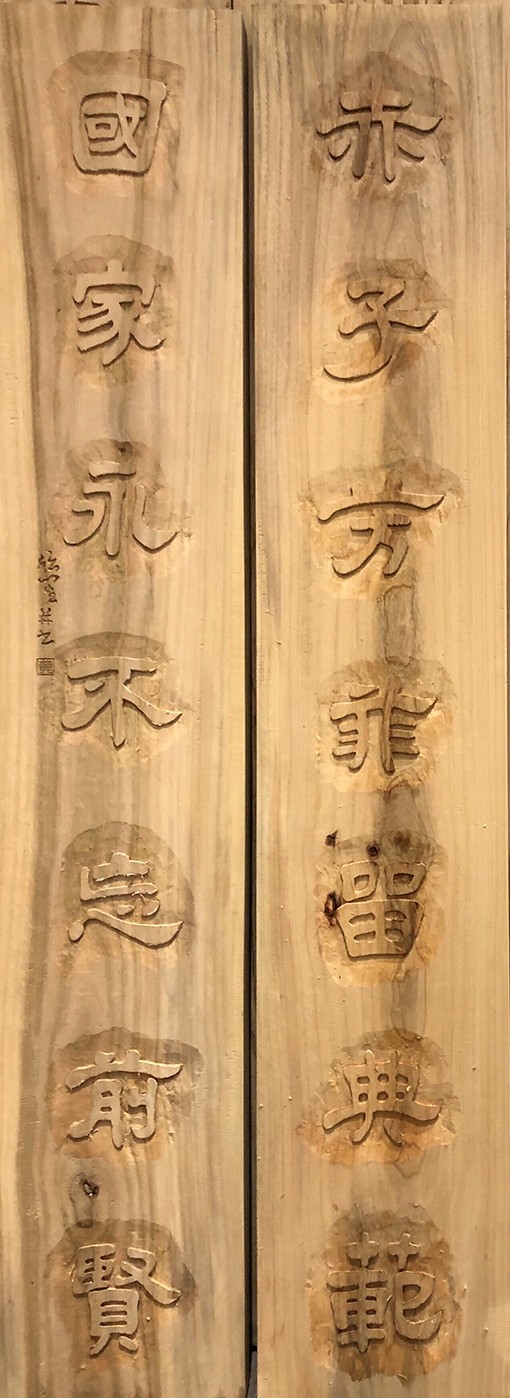 赤子芳菲留典範
國家永不忘前賢